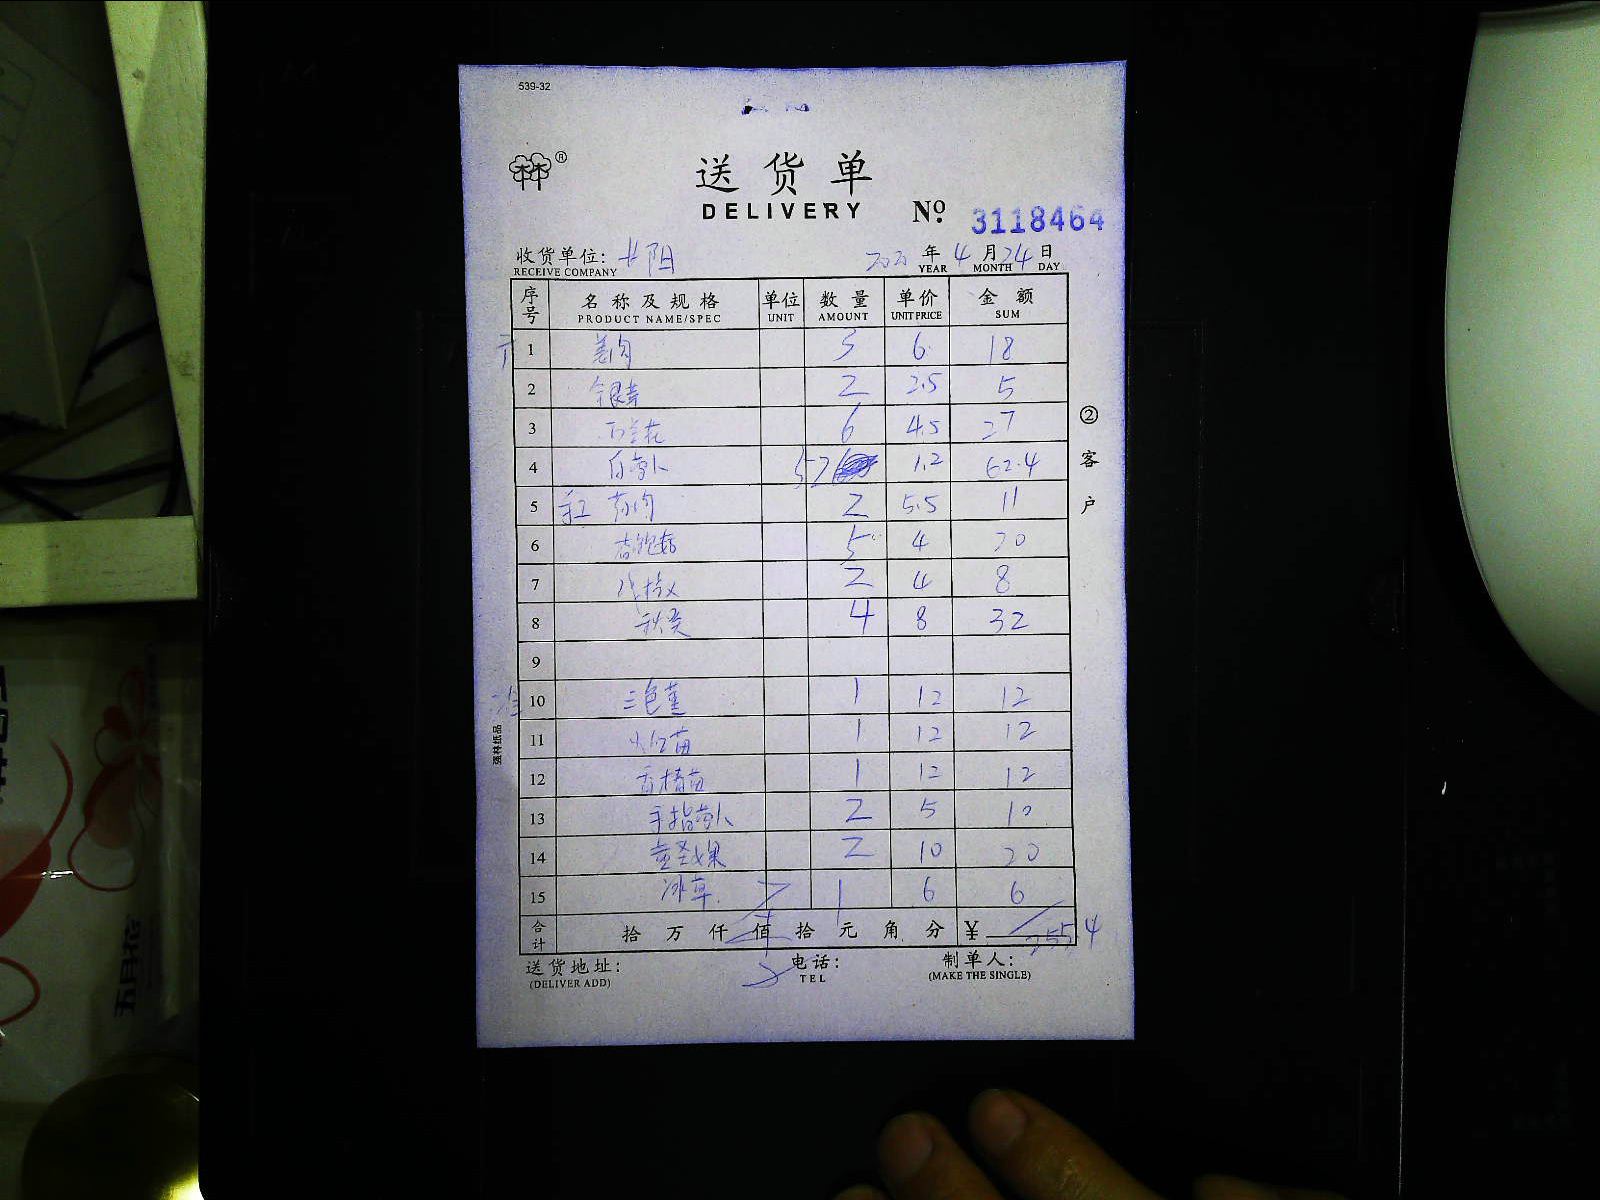 539-32
送货单
DELIVERY No 3118464
收货单位：
RECEIVE COMPANY
年 4 月 24 日
YEAR MONTH DAY
序号 名称及规格 单位 数量 单价 金额
PRODUCT NAME/SPEC UNIT AMOUNT UNIT PRICE SUM
1 姜肉 3 6 18
2 银芽 2 2.5 5
3 西兰花 6 4.5 27
4 白萝卜 52 1.2 62.4
5 2 5.5 11
6 杏鲍菇 5 4 20
7 2 4 8
8 秋葵 4 8 32
9
10 三色堇 1 12 12
11 1 12 12
12 1 12 12
13 手指萝卜 2 5 10
14 圣女果 2 10 20
15 冰草 1 6 6
合计 拾 万 仟 佰 拾 元 角 分 ¥ 255.4
送货地址： 电话： 制单人：
(DELIVER ADD) TEL (MAKE THE SINGLE)
②客户
强林纸品